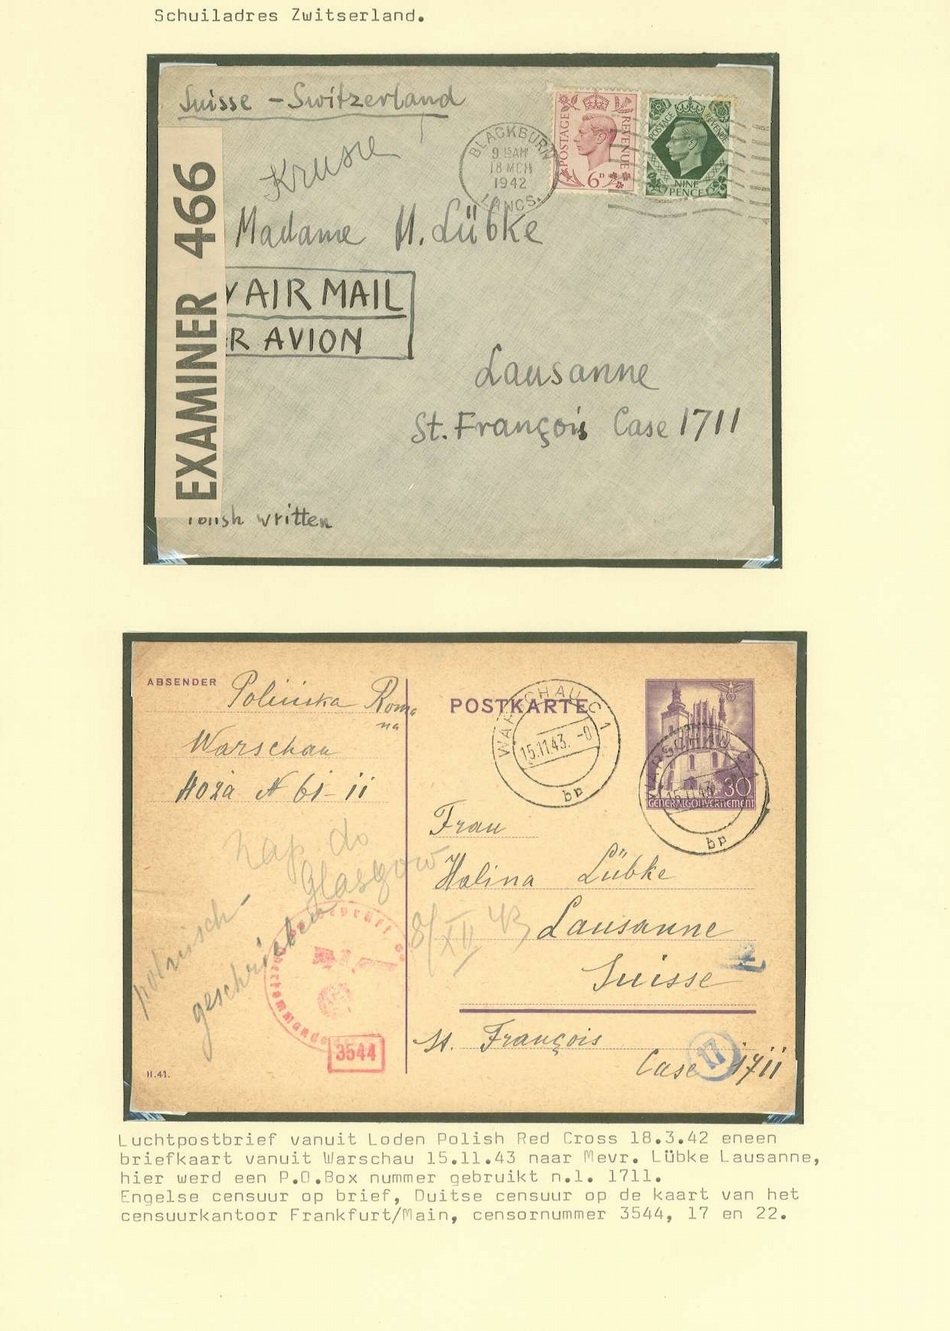 Schuiladres Zwitserland.
Suisse - Switzerland
Krusie
BLACKBURN
9 15AM
18 MCH
1942
LANCS.
POSTAGE REVENUE
6D
POSTAGE REVENUE
NINE PENCE
EXAMINER 466
Madame H. Lübke
Y AIR MAIL
R AVION
Lausanne
St. François Case 1711
Polish written
ABSENDER Polińska Roma
na
Warschau
Hoża N 61-11
POSTKARTE
WARSCHAU C 1
15.11.43.-0
bp
WARSCHAU C 1
15.11.43
bp
30
GENERALGOUVERNEMENT
Frau
Halina Lübke
Lausanne
Suisse
St. François
Case 1711
17
Zap do
Glasgow
8/XII 43
polnisch
geschrieben
Geprüft
Oberkommando
3544
II.41.
Luchtpostbrief vanuit Loden Polish Red Cross 18.3.42 eneen
briefkaart vanuit Warschau 15.11.43 naar Mevr. Lübke Lausanne,
hier werd een P.O.Box nummer gebruikt n.l. 1711.
Engelse censuur op brief, Duitse censuur op de kaart van het
censuurkantoor Frankfurt/Main, censornummer 3544, 17 en 22.